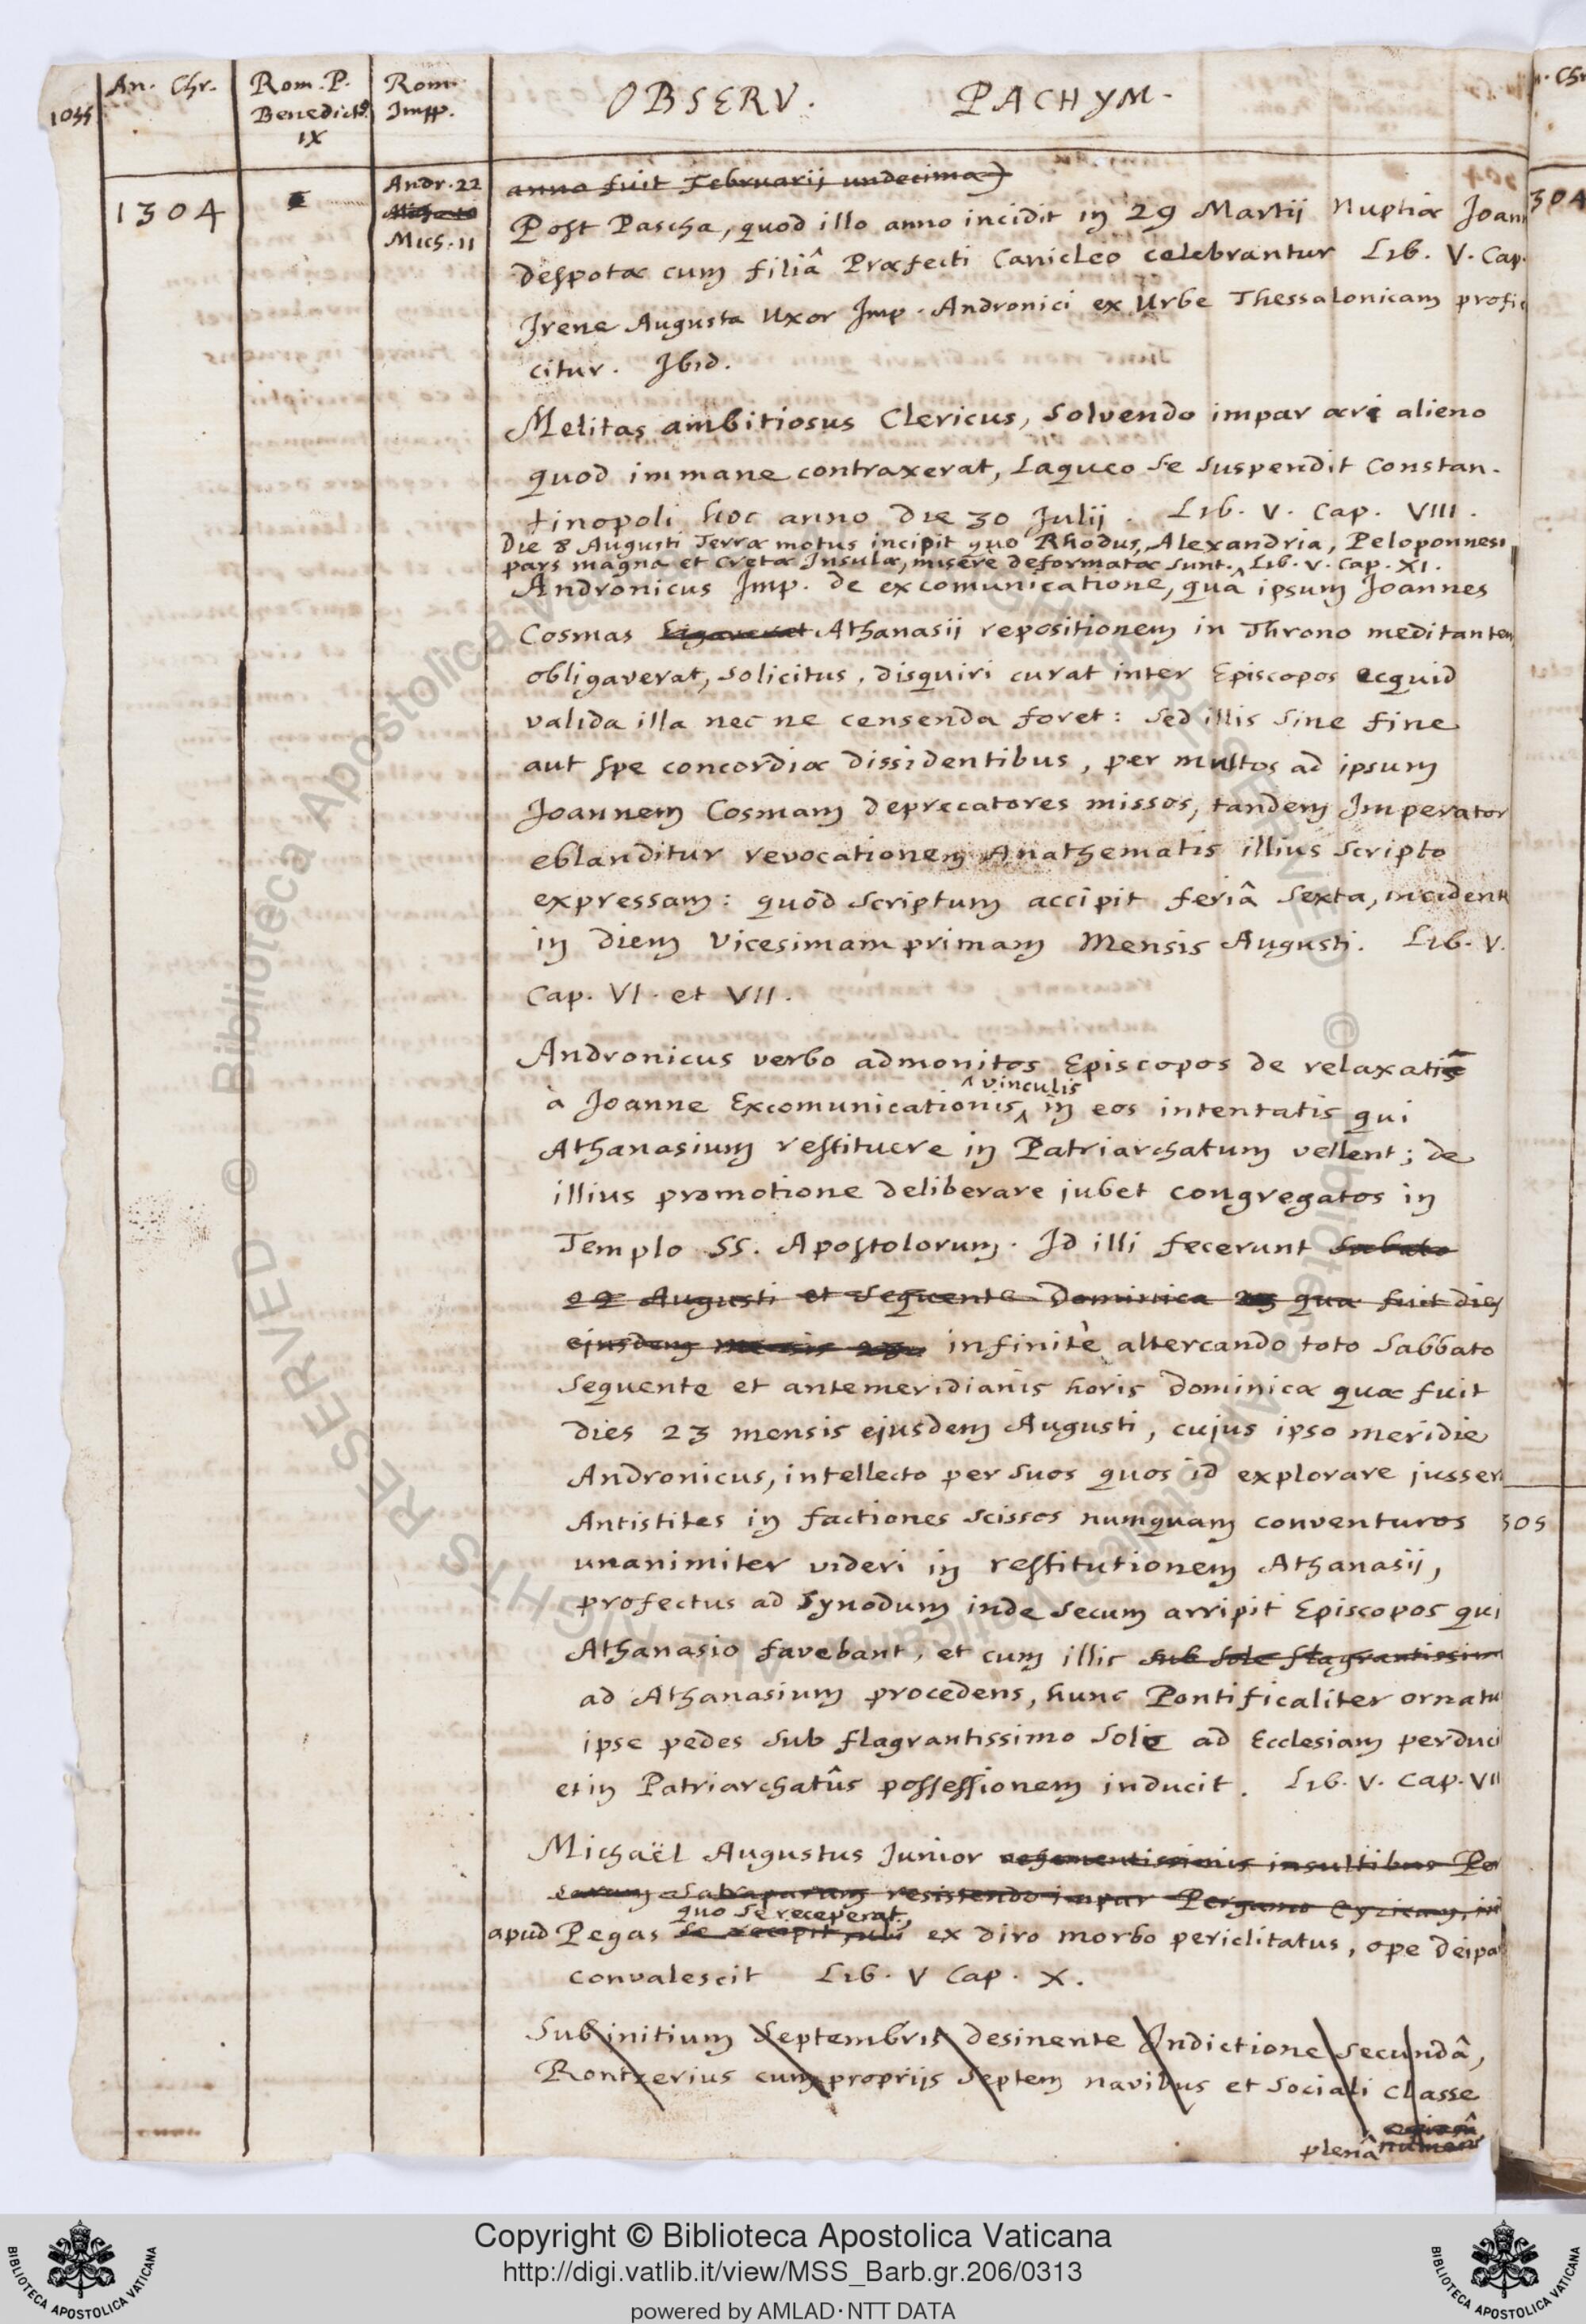 An. Chr.
Rom. P.
Benedict9
IX
Rom.
Impp.
OBSERV. PACHYM.
1304
Andr. 22
Mich. 11
anno fuit Februarij undecima)
Post Pascha, quod illo anno incidit in 29 Martij Nuptiæ Joann
despotæ cum filiâ Præfecti Canicleo celebrantur Lib. V. Cap.
Irene Augusta Uxor Imp. Andronici ex Urbe Thessalonicam profic
citur. Ibid.
Melitas ambitiosus Clericus, solvendo impar æri alieno
quod immane contraxerat, Laqueo se suspendit Constan-
tinopoli hoc anno die 30 Julij. Lib. V. Cap. VIII.
Die 8 Augusti Terræ motus incipit quo Rhodus, Alexandria, Peloponnesi
pars magna et Cretæ Insula, miserè deformatæ sunt. Lib. V. Cap. XI.
Andronicus Imp. de excomunicatione, quâ ipsum Joannes
Cosmas ligaverat Athanasij repositionem in Throno meditantem
obligaverat, solicitus, disquiri curat inter Episcopos ecquid
valida illa nec ne censenda foret: sed illis sine fine
aut spe concordiæ dissidentibus, per multos ad ipsum
Joannem Cosmam deprecatores missos, tandem Imperator
eblanditur revocationem Anathematis illius scripto
expressam: quod scriptum accipit feriâ sexta, incident
in diem vicesimam primam Mensis Augusti. Lib. V.
Cap. VI. et VII.
Andronicus verbo admonitos Episcopos de relaxatis
vinculis
à Joanne Excomunicationis in eos intentatis qui
Athanasium restituere in Patriarchatum vellent; de
illius promotione deliberare jubet congregatos in
Templo SS. Apostolorum. Id illi fecerunt Sabato
22 Augusti et sequente Dominica qua fuit dies
ejusdem mensis infinitè altercando toto Sabbato
sequente et antemeridianis horis Dominicæ quæ fuit
dies 23 mensis ejusdem Augusti, cujus ipso meridie
Andronicus, intellecto per suos quos id explorare jusser
Antistites in factiones scissos numquam conventuros
unanimiter videri in restitutionem Athanasij,
profectus ad Synodum inde secum arripit Episcopos qui
Athanasio favebant, et cum illis sub sole flagrantissim
ad Athanasium procedens, hunc Pontificaliter ornatu
ipse pedes sub flagrantissimo sole ad Ecclesiam perduci
et in Patriarchatûs possessionem inducit. Lib. V. Cap. VII
Michaël Augustus Junior vehementissimis insultibus Per
sarum Satraparum resistendo impar Pergamo Cyzicum,
quo se receperat,
apud Pegas se recepit, ubi ex diro morbo periclitatus, ope deipa
convalescit Lib. V Cap. X.
Sub initium Septembris desinente Indictione secundâ,
Rontzerius cum proprijs septem navibus et sociali classe
plenâ
. Chr
304
305
Copyright © Biblioteca Apostolica Vaticana
http://digi.vatlib.it/view/MSS_Barb.gr.206/0313
powered by AMLAD·NTT DATA
BIBLIOTECA APOSTOLICA VATICANA
BIBLIOTECA APOSTOLICA VATICANA
© Biblioteca Apostolica Vaticana ALL RIGHTS RESERVED